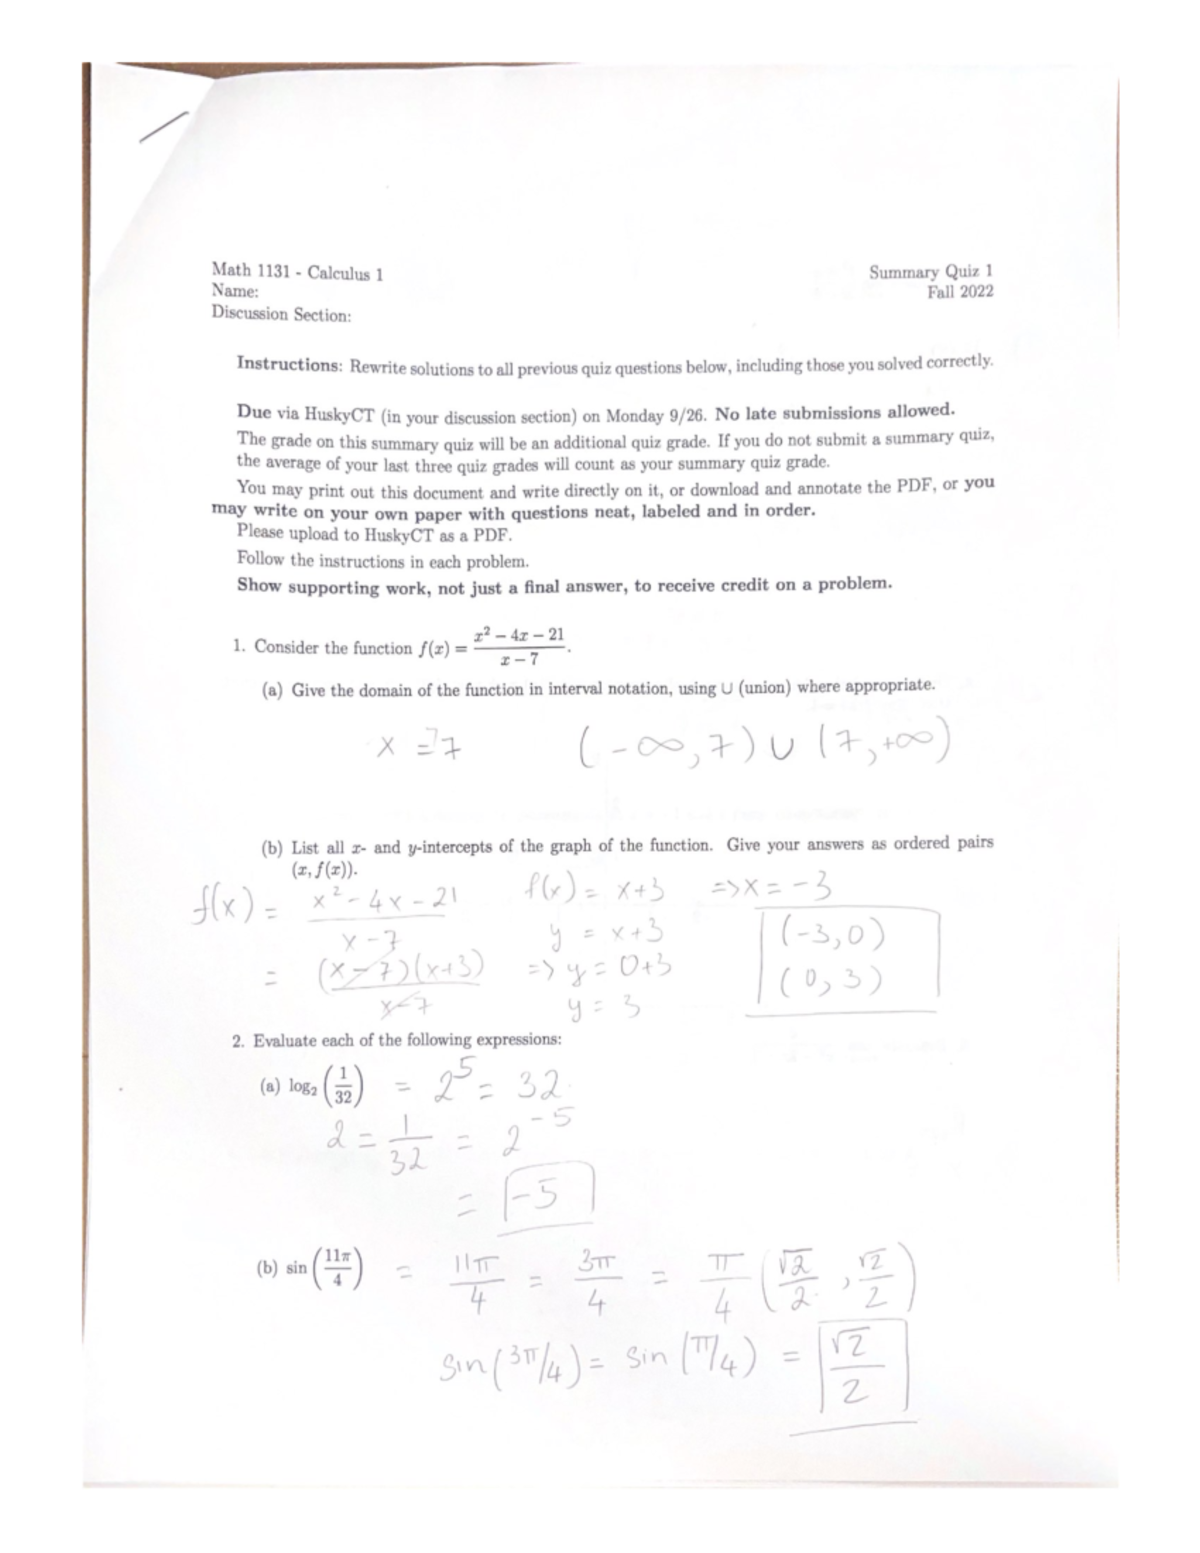 Math 1131 - Calculus 1
Summary Quiz 1
Name:
Fall 2022
Discussion Section:
Instructions: Rewrite solutions to all previous quiz questions below, including those you solved correctly.
Due via HuskyCT (in your discussion section) on Monday 9/26. No late submissions allowed.
The grade on this summary quiz will be an additional quiz grade. If you do not submit a summary quiz,
the average of your last three quiz grades will count as your summary quiz grade.
You may print out this document and write directly on it, or download and annotate the PDF, or you
may write on your own paper with questions neat, labeled and in order.
Please upload to HuskyCT as a PDF.
Follow the instructions in each problem.
Show supporting work, not just a final answer, to receive credit on a problem.
1. Consider the function f(x) = (x² − 4x − 21)/(x − 7).
(a) Give the domain of the function in interval notation, using ∪ (union) where appropriate.
x = 7 (-∞, 7) ∪ (7, +∞)
(b) List all x- and y-intercepts of the graph of the function. Give your answers as ordered pairs
(x, f(x)).
f(x) = (x² - 4x - 21)/(x - 7)
= (x-7)(x+3)/(x-7)
f(x) = x+3 => x = -3
y = x+3
=> y = 0+3
y = 3
(-3, 0)
(0, 3)
2. Evaluate each of the following expressions:
(a) log₂ (1/32) = 2⁵ = 32
2 = 1/32 = 2⁻⁵
= -5
(b) sin (11π/4) = 11π/4 = 3π/4 = π/4 (√2/2, √2/2)
sin(3π/4) = sin(π/4) = √2/2